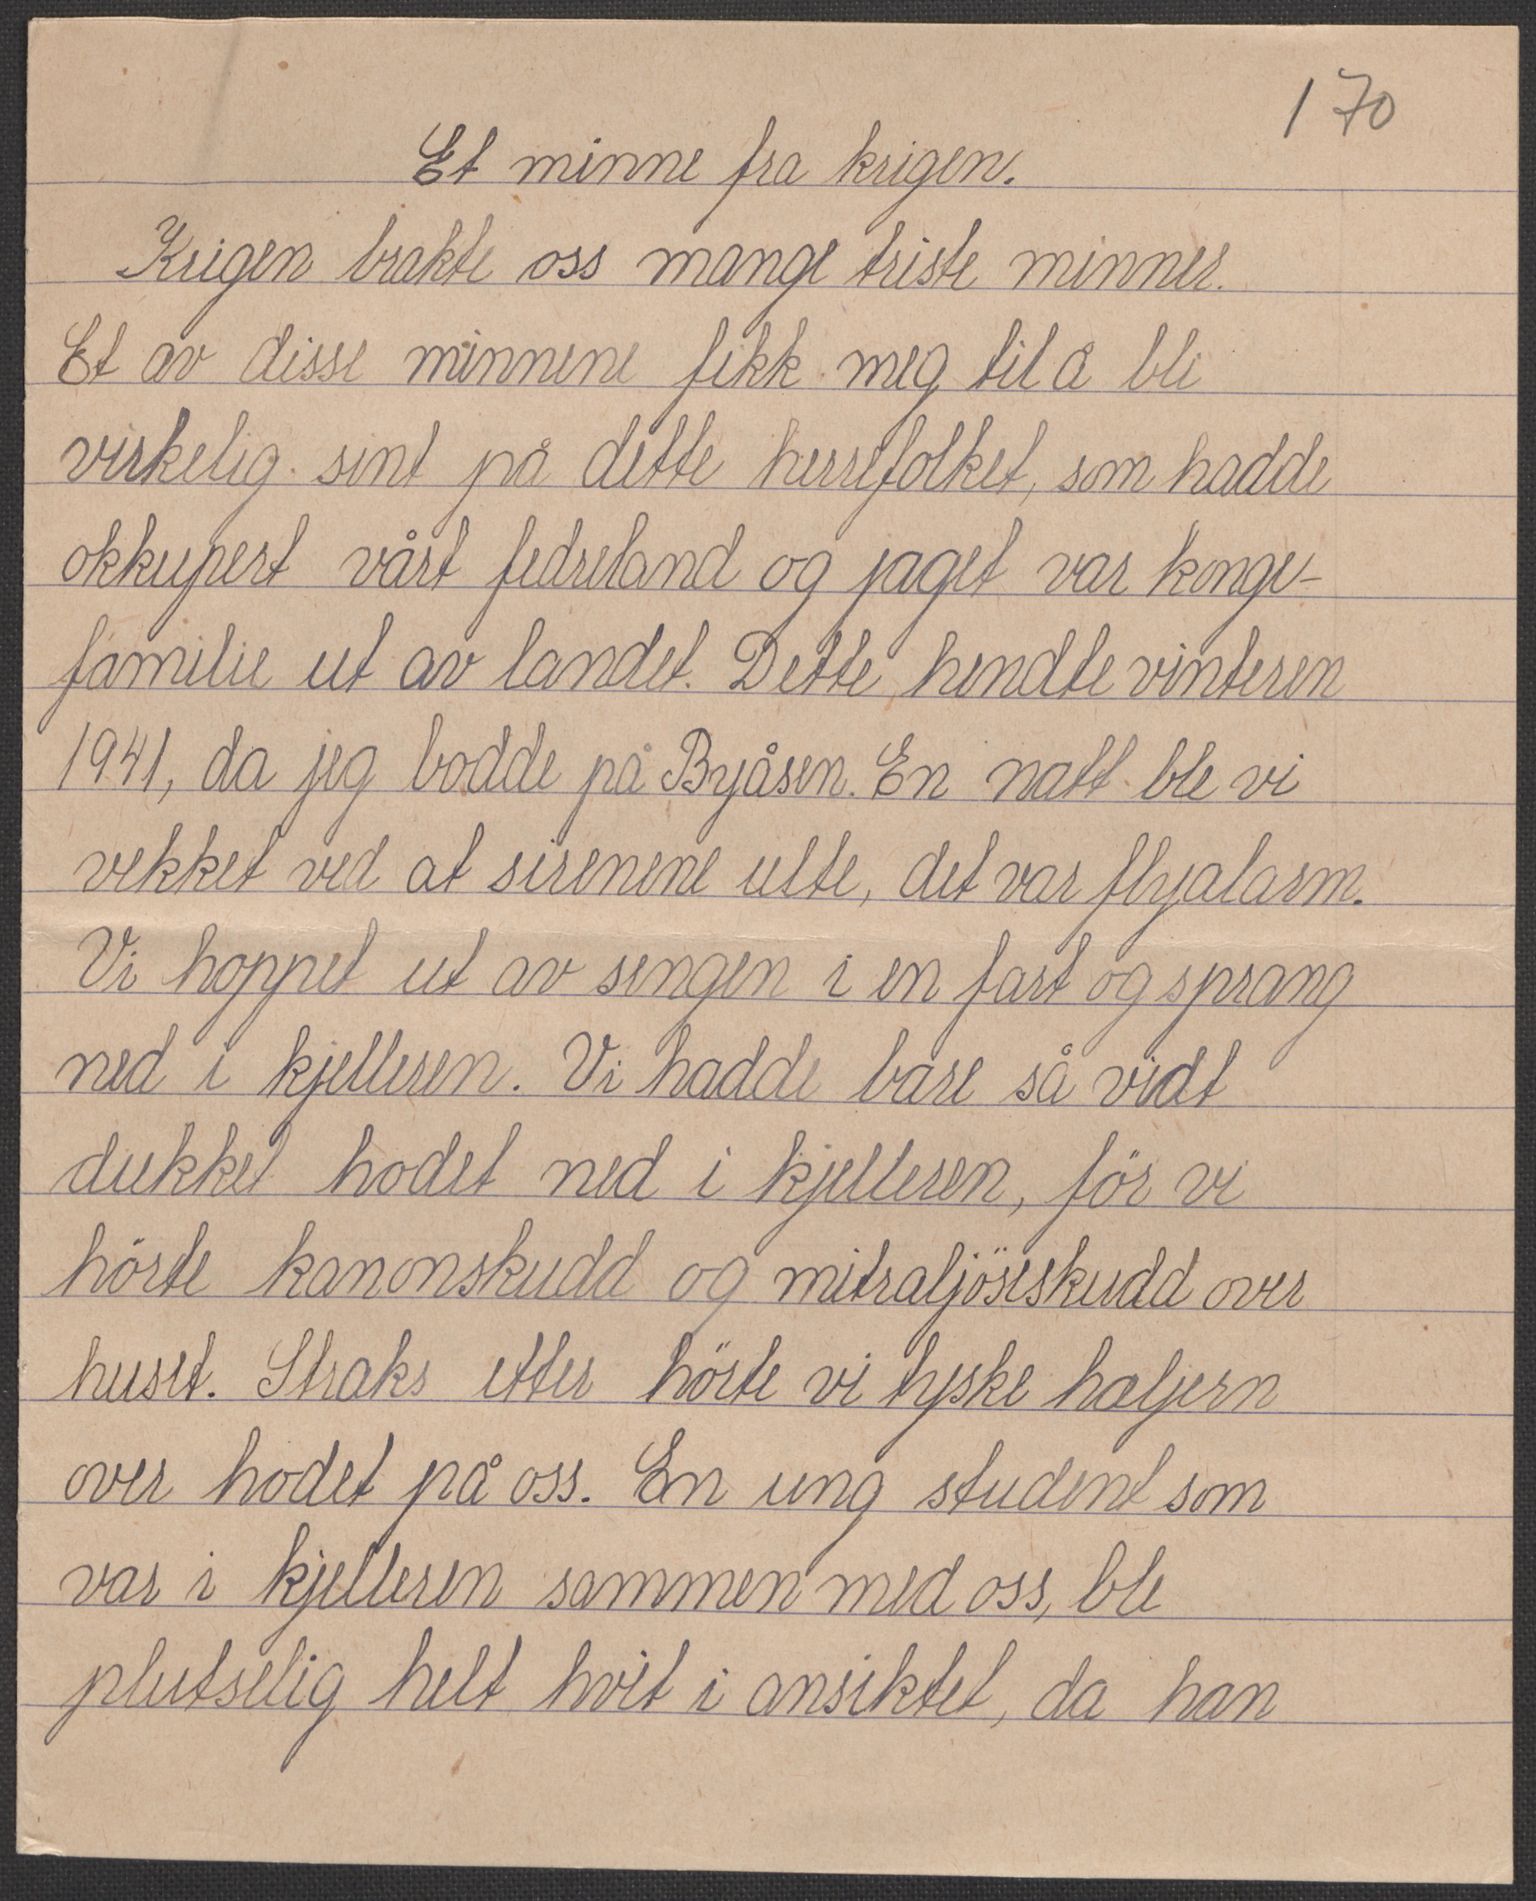 170
Et minne fra krigen.
Krigen brakte oss mange triste minner.
Et av disse minnene fikk meg til å bli
virkelig sint på dette herrefolket, som hadde
okkupert vårt fedreland og jaget vår konge-
familie ut av landet. Dette hendte vinteren
1941, da jeg bodde på Byåsen. En natt ble vi
vekket ved at sirenene ulte, det var flyalarm.
Vi hoppet ut av sengen i en fart og sprang
ned i kjelleren. Vi hadde bare så vidt
dukket hodet ned i kjelleren, för vi
hörte kanonskudd og mitraljöseskudd over
huset. Straks etter hörte vi tyske hæljern
over hodet på oss. En ung student som
var i kjelleren sammen med oss, ble
plutselig helt hvit i ansiktet, da han